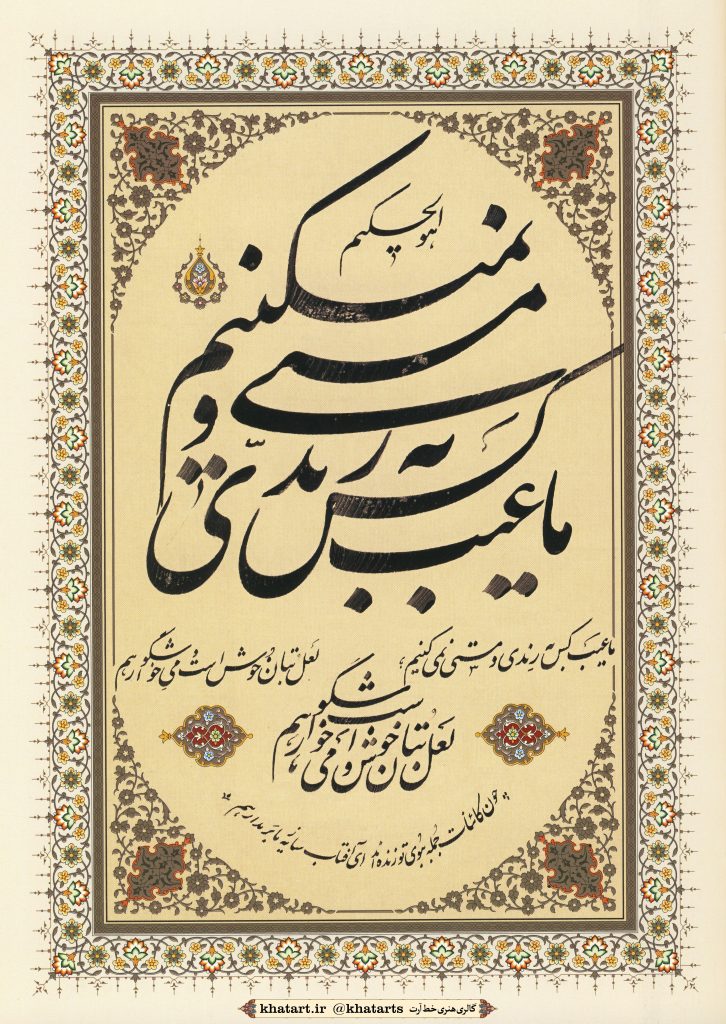 هوالحکیم
ما عیب کس به رندی و مستی نمیکنیم
ما عیب کس به رندی و مستی نمی کنیم لعل بتان خوش است و می خوشگوار هم
لعل بتان خوش است و می خوشگوار هم
چون کائنات جمله ببوی تو زنده اند ای آفتاب سایه ز ما بر مدار هم
گالری هنری خط آرت @khatarts khatart.ir